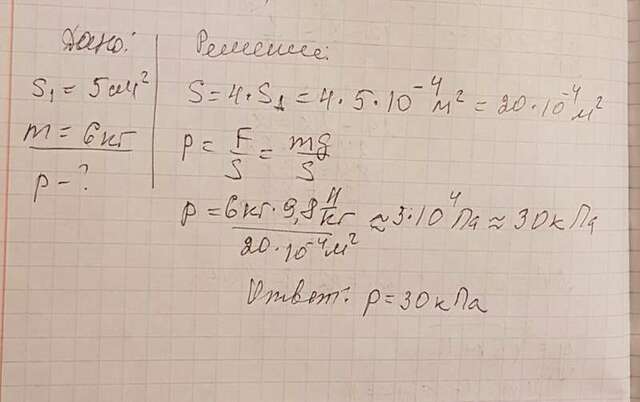 Дано:
S₁ = 5 см²
m = 6 кг
p - ?
Решение:
S = 4 · S₁ = 4 · 5 · 10⁻⁴ м² = 20 · 10⁻⁴ м²
p = F/S = mg/S
p = 6 кг · 9,8 Н/кг / 20 · 10⁻⁴ м² ≈ 3 · 10⁴ Па ≈ 30 кПа
Ответ: p = 30 кПа